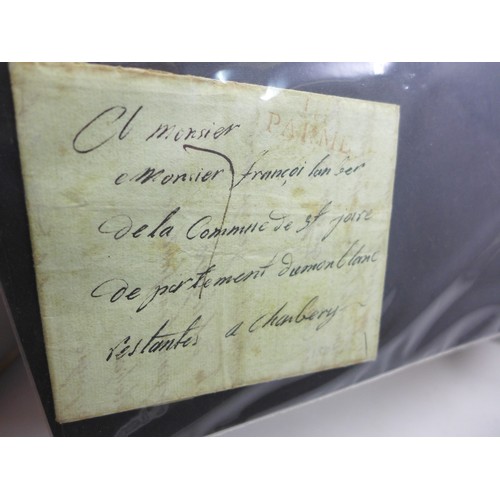 PARME
A monsier
Monsier françoi lanser
de la Commue de st joire
de partement dumontblanc
restantes a Chanbery